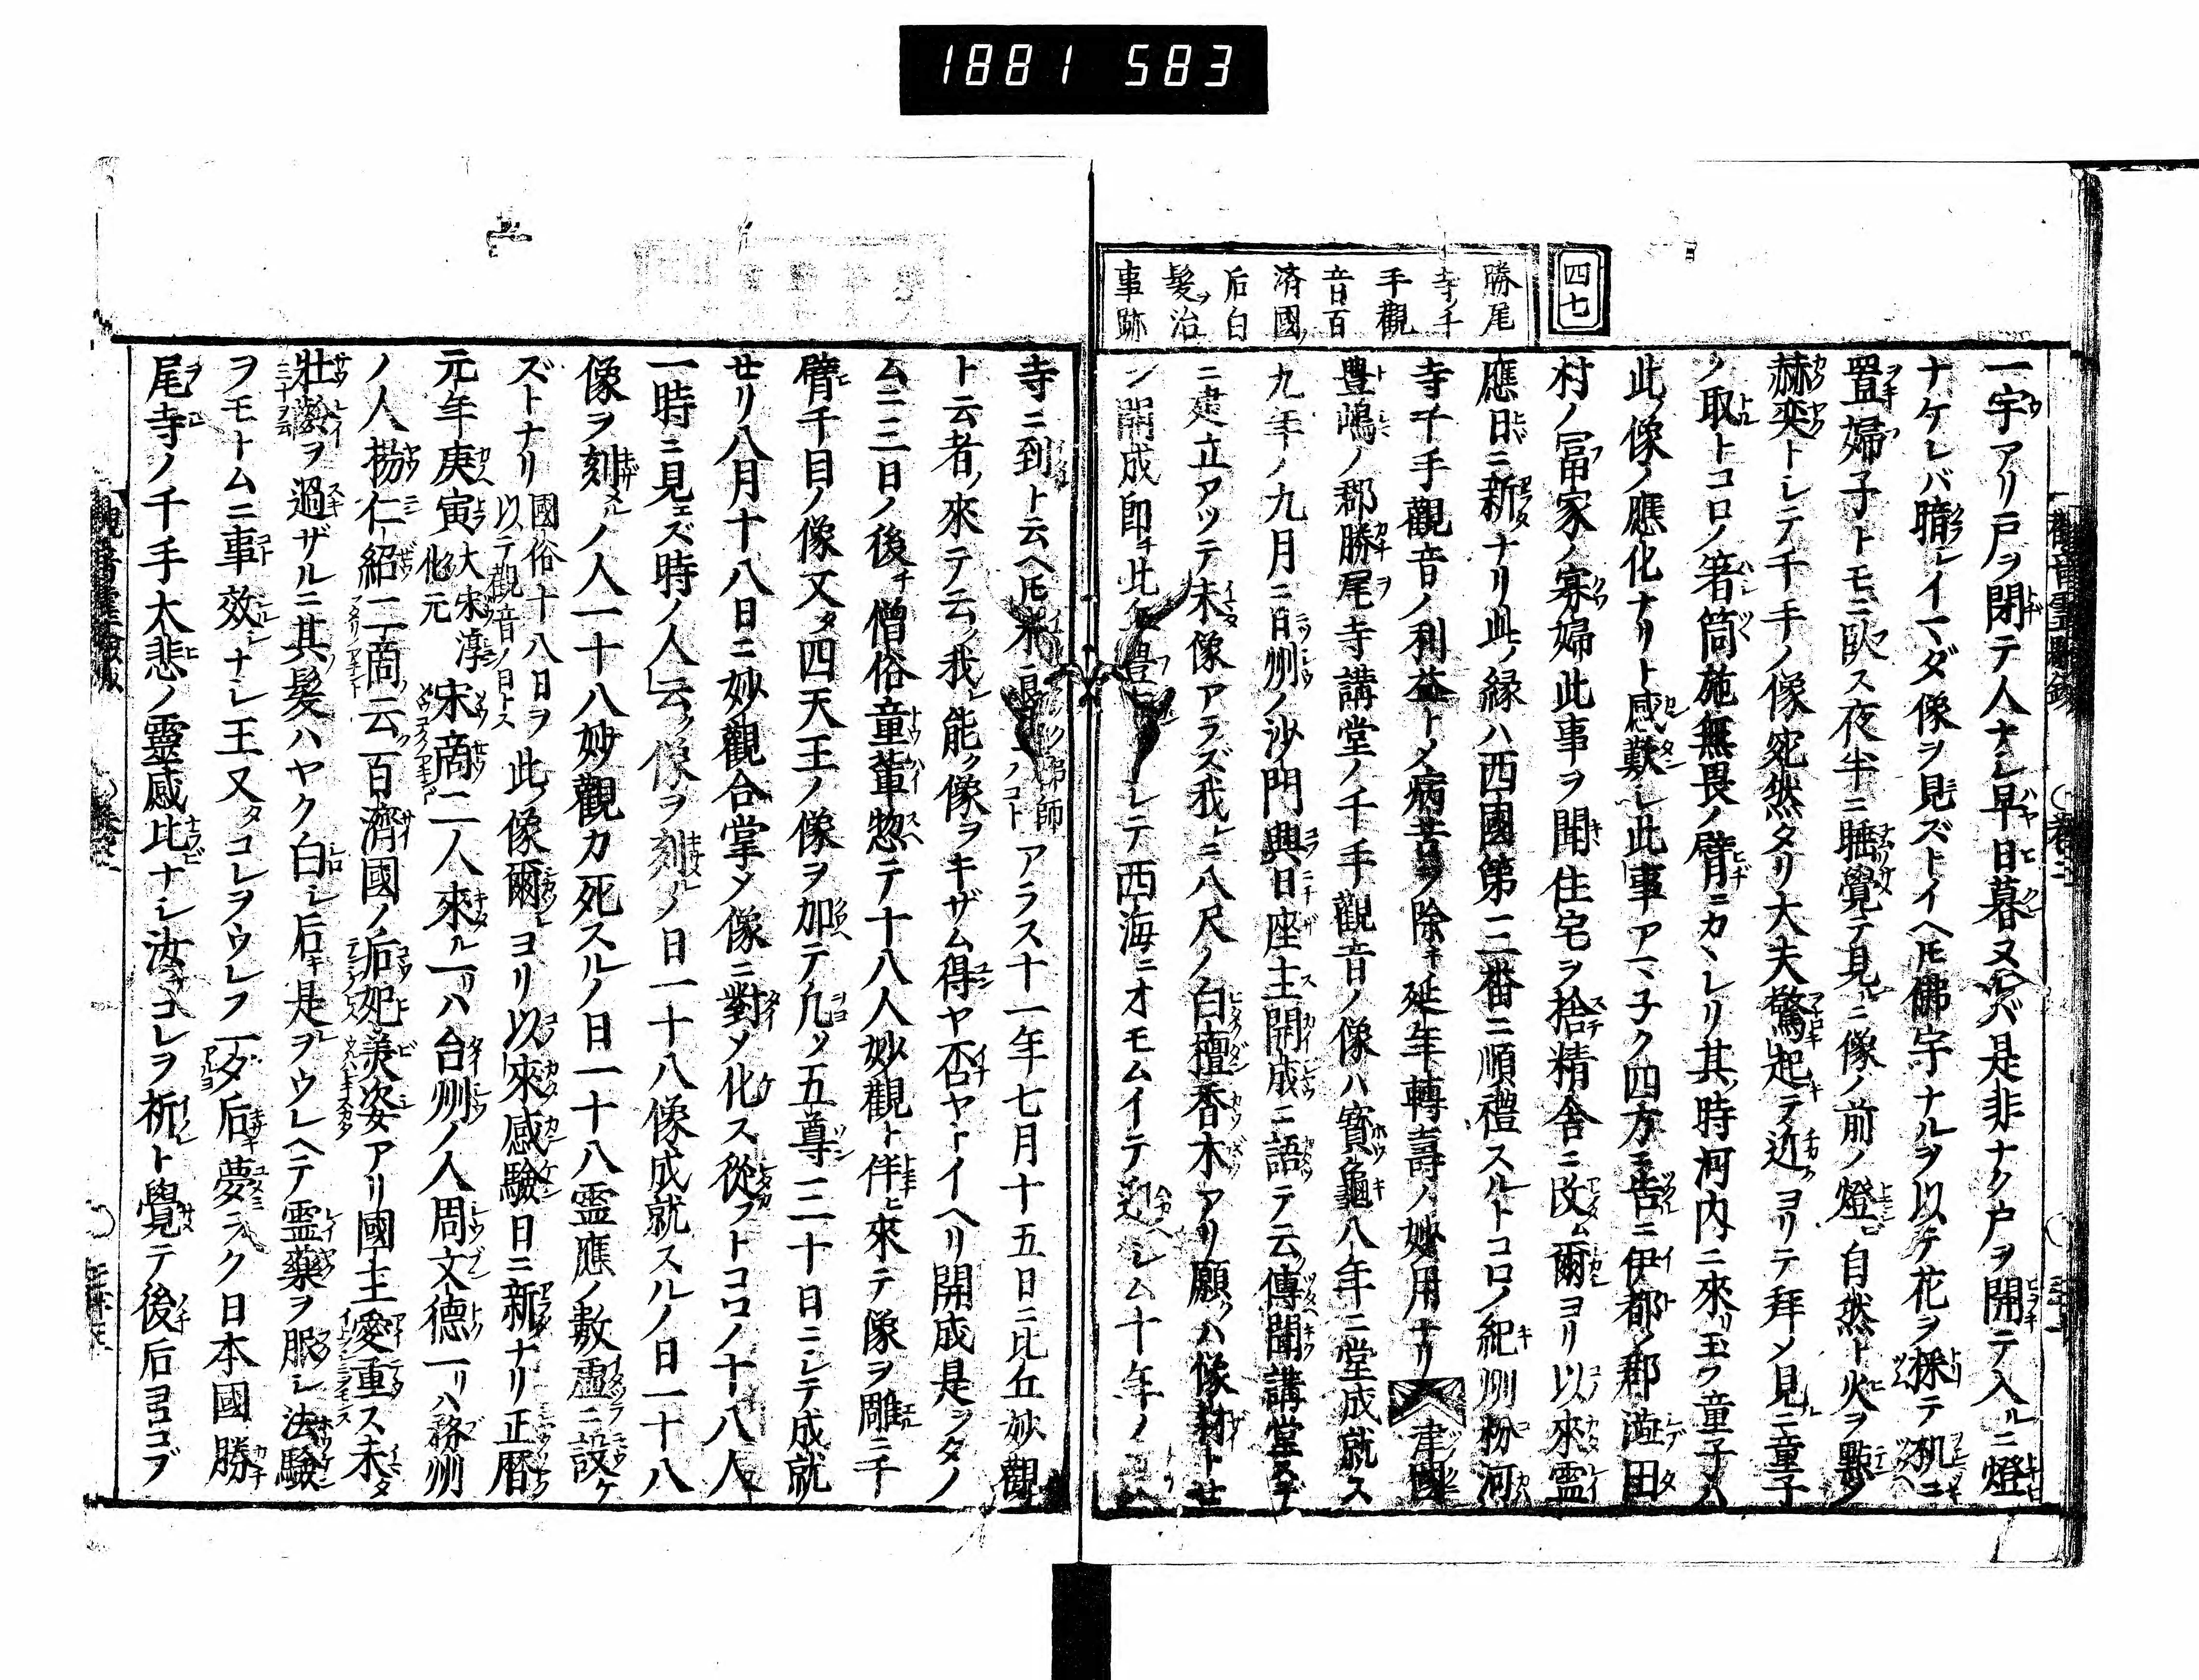 1881 583
四七
勝尾
寺ノ千
手觀
音百
済國ノ
后白
髪ヲ治
事跡
一宇アリ戸ヲ閉テ人ナシ早日暮ヌレバ是非ナク戸ヲ開テ入ルニ燈
ナケレバ暗シイマダ像ヲ見ズトイヘ𪜈佛宇ナルヲ以テ花ヲ採テ机ニ
置婦子トモニ臥ス夜半ニ睡覺テ見ルニ像ノ前ノ燈ヒ自然ト火ヲ點ノ
赫奕トシテ千手ノ像宛然タリ大夫驚起テ近ヨリテ拜メ見ルニ童子
ノ取トコロノ箸筒施無畏ノ臂ニカヽレリ其ノ時河内ニ來リ玉フ童子ハ
此ノ像ノ應化ナリト感歎シ此ノ事アマネク四方ニ告ニ伊都ノ郡澁田
村ノ冨家ノ寡婦此事ヲ聞キ住宅ヲ捨精舎ニ改ム爾ヨリ以來霊
應日ニ新ナリ此ノ縁ハ西國第三番ニ順禮スルトコロノ紀州粉河
寺千手觀音ノ利益トメ病苦ヲ除キ延年轉壽ノ妙用ナリ 津國
豊嶋ノ郡勝尾寺講堂ノ千手觀音ノ像ハ寳龜八年ニ堂成就ス
九年ノ九月ニ日州ノ沙門興日座主開成ニ語テ云ク傳聞講堂ステ
ニ建立アツテ未像アラズ我レニ八尺ノ白檀香木アリ願クハ像材トせ
ン開成即チ此 シテ西海ニオモムイテ迎ヘシム十年ノ
寺ニ到ト云ヘ𪜈未ニ アラス十一年七月十五日ニ比丘妙觀
ト云者ノ來テ云ク我レ能ク像ヲキザム得ヤ否ヤトイヘリ開成是ヲタノ
ムニ三日ノ後チ僧俗童輩惣テ十八人妙觀ト伴ヒ來テ像ヲ雕ニ千
臂千目ノ像又タ四天王ノ像ヲ加テ凢ソ五尊三十日ニシテ成就
せリ八月十八日ニ妙觀合掌メ像ニ對メ化ス從フトコロノ十八人
一時ニ見エズ時ノ人云ク像ヲ刻ルノ日一十八像成就スルノ日一十八
像ヲ刻ルノ人一十八妙觀カ死スルノ日一十八霊應ノ數虚ニ設ケ
ズトナリ 國俗十八日ヲ以テ觀音ノ日トス 此ノ像爾ヨリ以來感驗日ニ新ナリ正暦
元年庚寅 大宋淳化元 宋商二人來ル一リハ台州ノ人周文德一リハ務州
ノ人揚仁紹二商云ク百濟國ノ后妃美姿アリ國主愛重ス未タ
壮齡ヲ過ザルニ其髪ハヤク白シ后キ是レヲウレヘテ霊藥ヲ服シ法驗
ヲモトムニ事効シナシ王又タコレヲウレフ一ダ后夢ラク日本國勝
尾寺ノ千手大悲ノ靈感比ナシ汝チコレヲ祈ト覺テ後后ヨロコブ